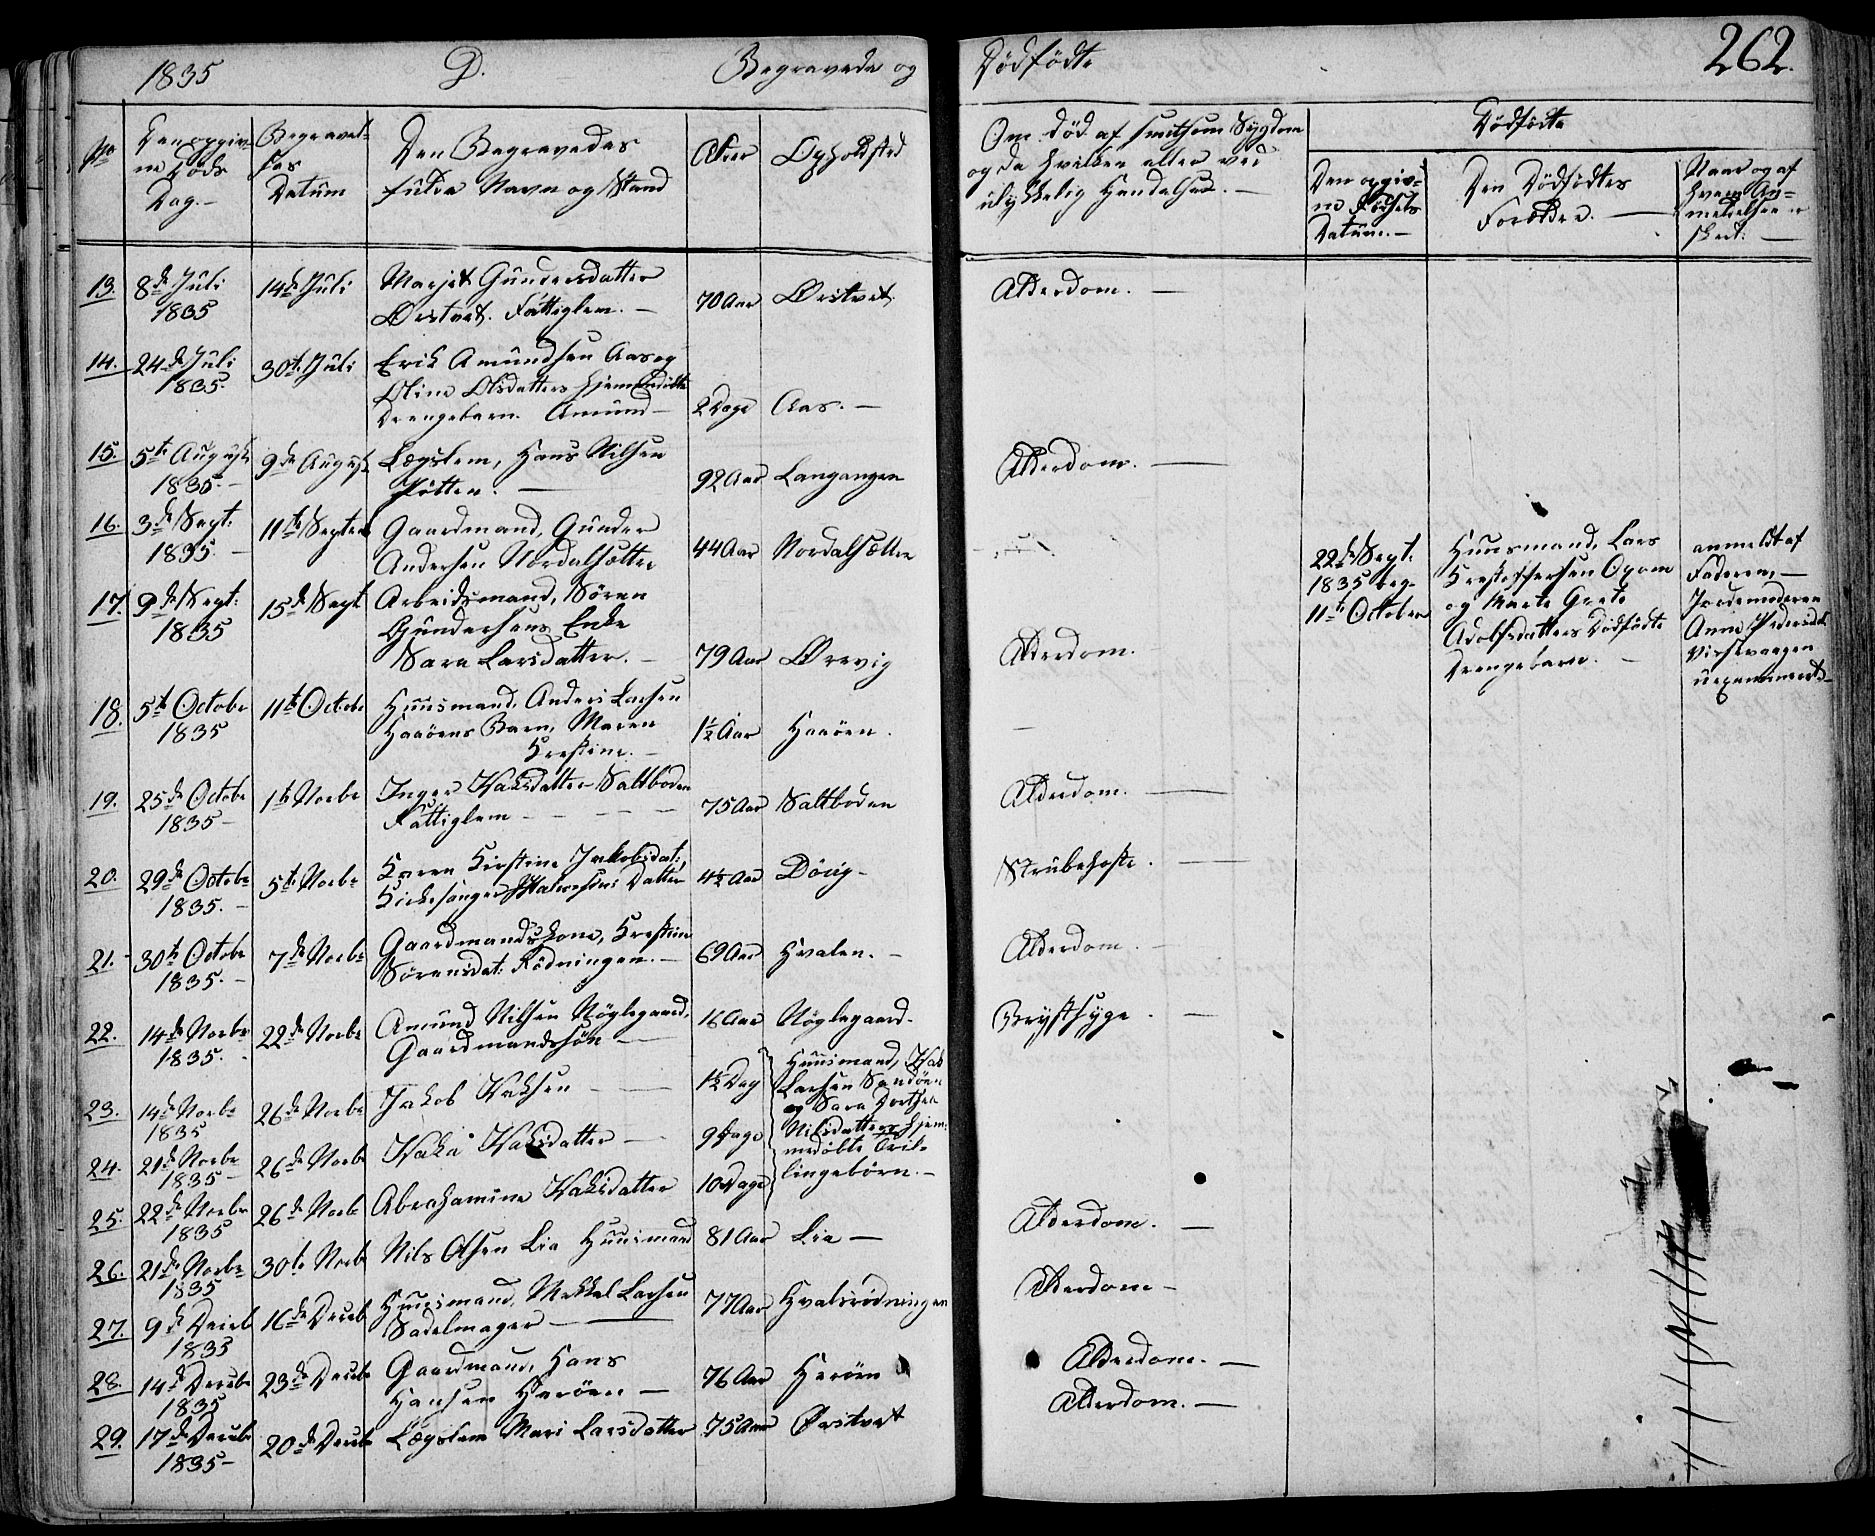 1835 D. Begravede og Dødfødte 262.
No
Den opgivne Døds Dag.-
Begravelses Datum
Den Begravedes fulde Navn og Stand
Alder
Opholdsted
Om død af smitsom Sygdom
og da hvilken eller ved
ulykkelig Hændelse. -
Dødfødte
Den opgivne Fødsels Datum. -
Den Dødfødtes Forældre. -
Naar og af hvem Anmeldelsen er skeed. -
13. 8de Juli 1835 14de Juli Marjet Gundersdatter
Ørstvet. Fattiglem. - 70 Aar Ørstvet. Alderdom. -
14. 24de Juli 1835 30te Juli Erik Amundsen Aas og
Oline Olsdatters hjemmedøbte
Drengebarn. Amund - 2 Dage Aas. -
15. 5te August 1835. - 9de August Lægslem, Hans Nilsen
92 Aar Langangen Alderdom. -
16. 3de Sept: 1835. - 11te Septembr Gaardmand, Gunder
Andersen Nordalsætter 44 Aar Nordalsætter
22de Sept. 1835 beg. 11te October
Huusmand, Lars
Krestoffersen
og Marte Grete
Adolfsdatters Dødfødte
Drengebarn. -
anmeldt af
Faderen, -
Jordemoderen
Anne Pedersdat
17. 9de Sept: 1835 15de Sept Arbeidsmand, Søren
Gundersens Enke
Sara Larsdatter. - 79 Aar Ørevig Alderdom.
18. 5te Octobr 1835 11te Octobr Huusmand, Anders Larsen
Haaøens Barn, Maren
Krestine. - 1½ Aar Haaøen. -
19. 25de Octobr 1835 - 1te Novbr Inger Isaksdatter Saltboden
Fattiglem - - - - 75 Aar Saltboden Alderdom. -
20. 29de Octobr 1835. - 5te Novbr Karen Kirstine Jakobsdat:,
Kirkesanger Halvorsens Datter 4½ Aar Døvig - Strubehoste. -
21. 30te Octobr 1835. - 7de Novbr Gaardmandskone, Krestine
Sørensdat: Rødningen. - 69 Aar Hvalen. - Alderdom. -
22. 14de Novbr 1835. - 22de Novbr Amund Nilsen Nøglegaard,
Gaardmandssøn - 16 Aar Nøglegaard. Brystsyge. -
23. 14de Novbr 1835 26de Novbr Jakob Isaksen - 1½ Dag
Huusmand, Isak
Larsen Sandøen
og Sara Dorthea
Nilsdatters hjem-
medøbte Tril-
lingebørn. -
24. 21de Novbr 1835 - 26de Novbr Isaka Isaksdatter - 9 Dage
25. 22de Novbr 1835 26de Novbr Abrahamine Isaksdatter 10 Dage
26. 21de Novbr 1835 30te Novbr Nils Olsen Lia Huusmand 81 Aar Lia - Alderdom. -
27. 9de Decbr 1835 16de Decbr Huusmand, Mekkel Larsen
Sadelmager - 77 Aar Hvalsrødningen Alderdom -
28. 14de Decbr 1835 23de Decbr Gaardmand, Hans
Hansen Herøen - 76 Aar Herøen Alderdom. -
29. 17de Decbr 1835 - 20de Decbr Lægslem Mari Larsdatter 75 Aar Ørstvet Alderdom. -